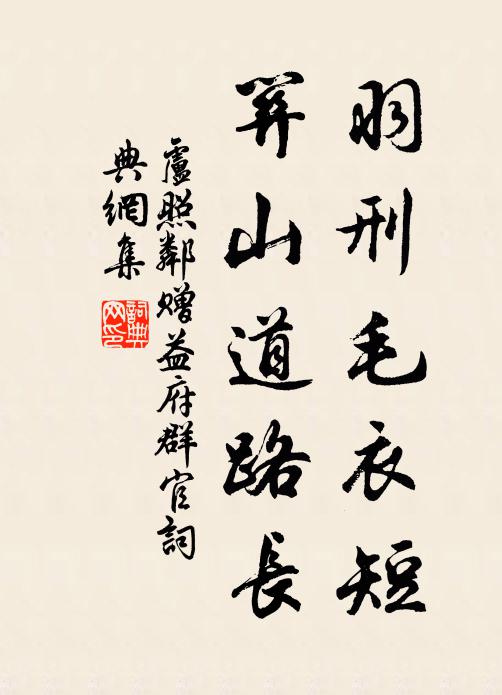 羽刑毛衣短
關山道路長
盧照鄰贈益府群官詞
典網集
詞典
网印